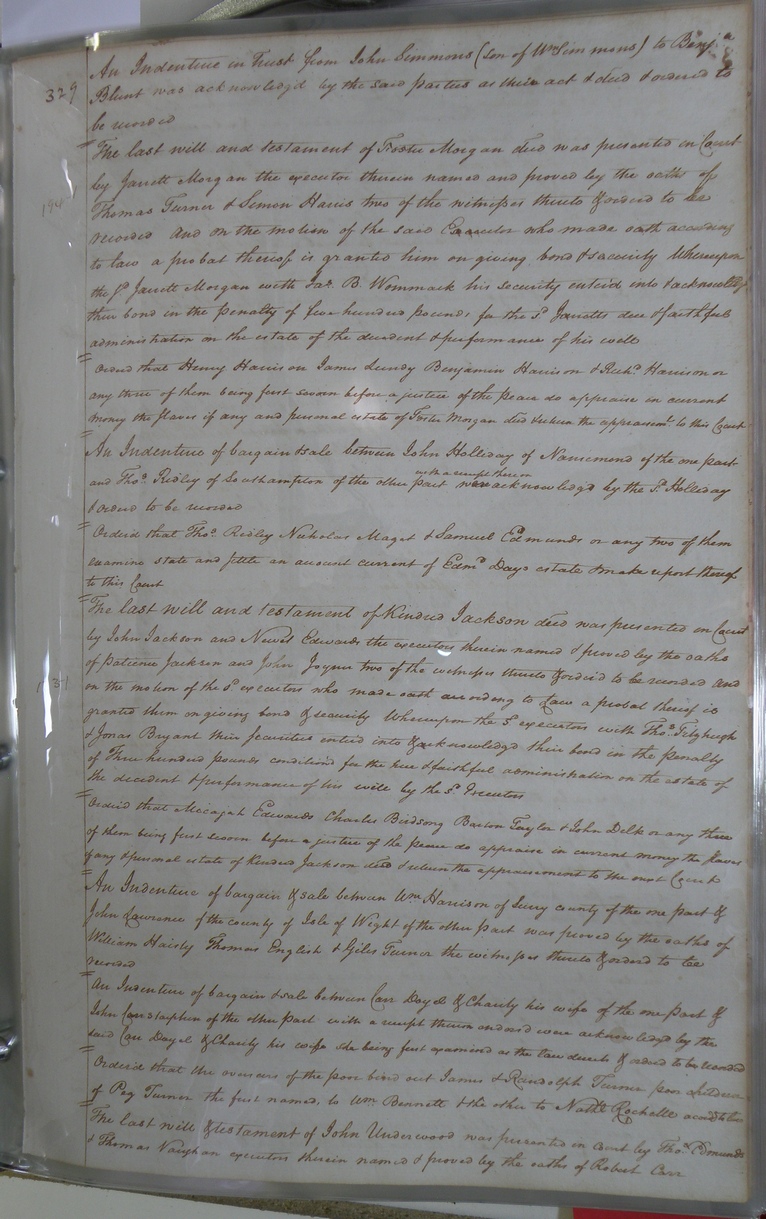 An Indenture in Trust from John Simmons (son of Wm Simmons) to Benja
329
Blunt was acknowledg'd by the said parties as their act & deed & ordered to
be recorded
The last will and testament of Foster Morgan decd was presented in Court
by Jarrett Morgan the executor therein named and proved by the oaths of
Thomas Turner & Simon Harris two of the witnesses thereto & ordered to be
recorded And on the motion of the said Executor who made oath according
to law a probat thereof is granted him on giving bond & security Whereupon
the sd Jarrett Morgan with Jas. B. Wommack his security enterid into & acknowledg'd
their bond in the penalty of five hundred pounds for the sd Jarretts due & faithful
administration on the estate of the decedent & performance of his will
Orderd that Henry Harrison James Lundy Benjamin Harrison & Richd Harrison or
any three of them being first sworn before a justice of the peace do appraise in current
money the slaves if any and personal estate of Foster Morgan decd & return the appraisemt to this Court
An Indenture of bargain & sale between John Holliday of Nansemond of the one part
and Thos. Ridley of Southampton of the other part with a receipt thereon were acknowledg'd by the sd Holliday
& orderd to be recorded
Orderd that Thos. Ridley Nicholas Maget & Samuel Edmunds or any two of them
examine state and settle an account current of Edmd Days estate & make report thereof
to this Court
The last will and testament of Kindred Jackson decd was presented in Court
by John Jackson and Newit Edwards the executors therein named & proved by the oaths
of Patience Jackson and John Joyner two of the witnesses thereto & orderd to be recorded and
on the motion of the sd executors who made oath according to Law a probat thereof is
granted them on giving bond & security Whereupon the sd executors with Thos. Fitzhugh
& Jonas Bryant their securities enterid into & acknowledgd their bond in the penalty
of Three hundred pounds conditiond for the true & faithful administration on the estate of
the decedent & performance of his will by the sd Executors
Orderd that Micajah Edwards Charles Birdsong Barton Taylor & John Delk or any three
of them being first sworn before a justice of the peace do appraise in current money the slaves
if any & personal estate of Kindred Jackson decd & return the appraisement to the next Court
An Indenture of bargain & sale between Wm Harrison of Surry county of the one part &
John Lawrence of the county of Isle of Wight of the other part was proved by the oaths of
William Haisty Thomas English & Giles Turner the witnesses thereto & orderd to be
recorded
An Indenture of bargain & sale between Carr Doyel & Charity his wife of the one part &
John Carstarphen of the other part with a receipt thereon endorsd were acknowledgd by the
said Carr Doyel & Charity his wife she being first examined as the law directs & orderd to be recorded
Orderd that the overseers of the poor bind out James & Randolph Turner poor children
of Peg Turner the first named, to Wm Bennett & the other to Nathl Rochelle accordg to law
The last will & testament of John Underwood was presented in court by Thos. Edmunds
& Thomas Vaughan executors therein named & proved by the oaths of Robert Carr